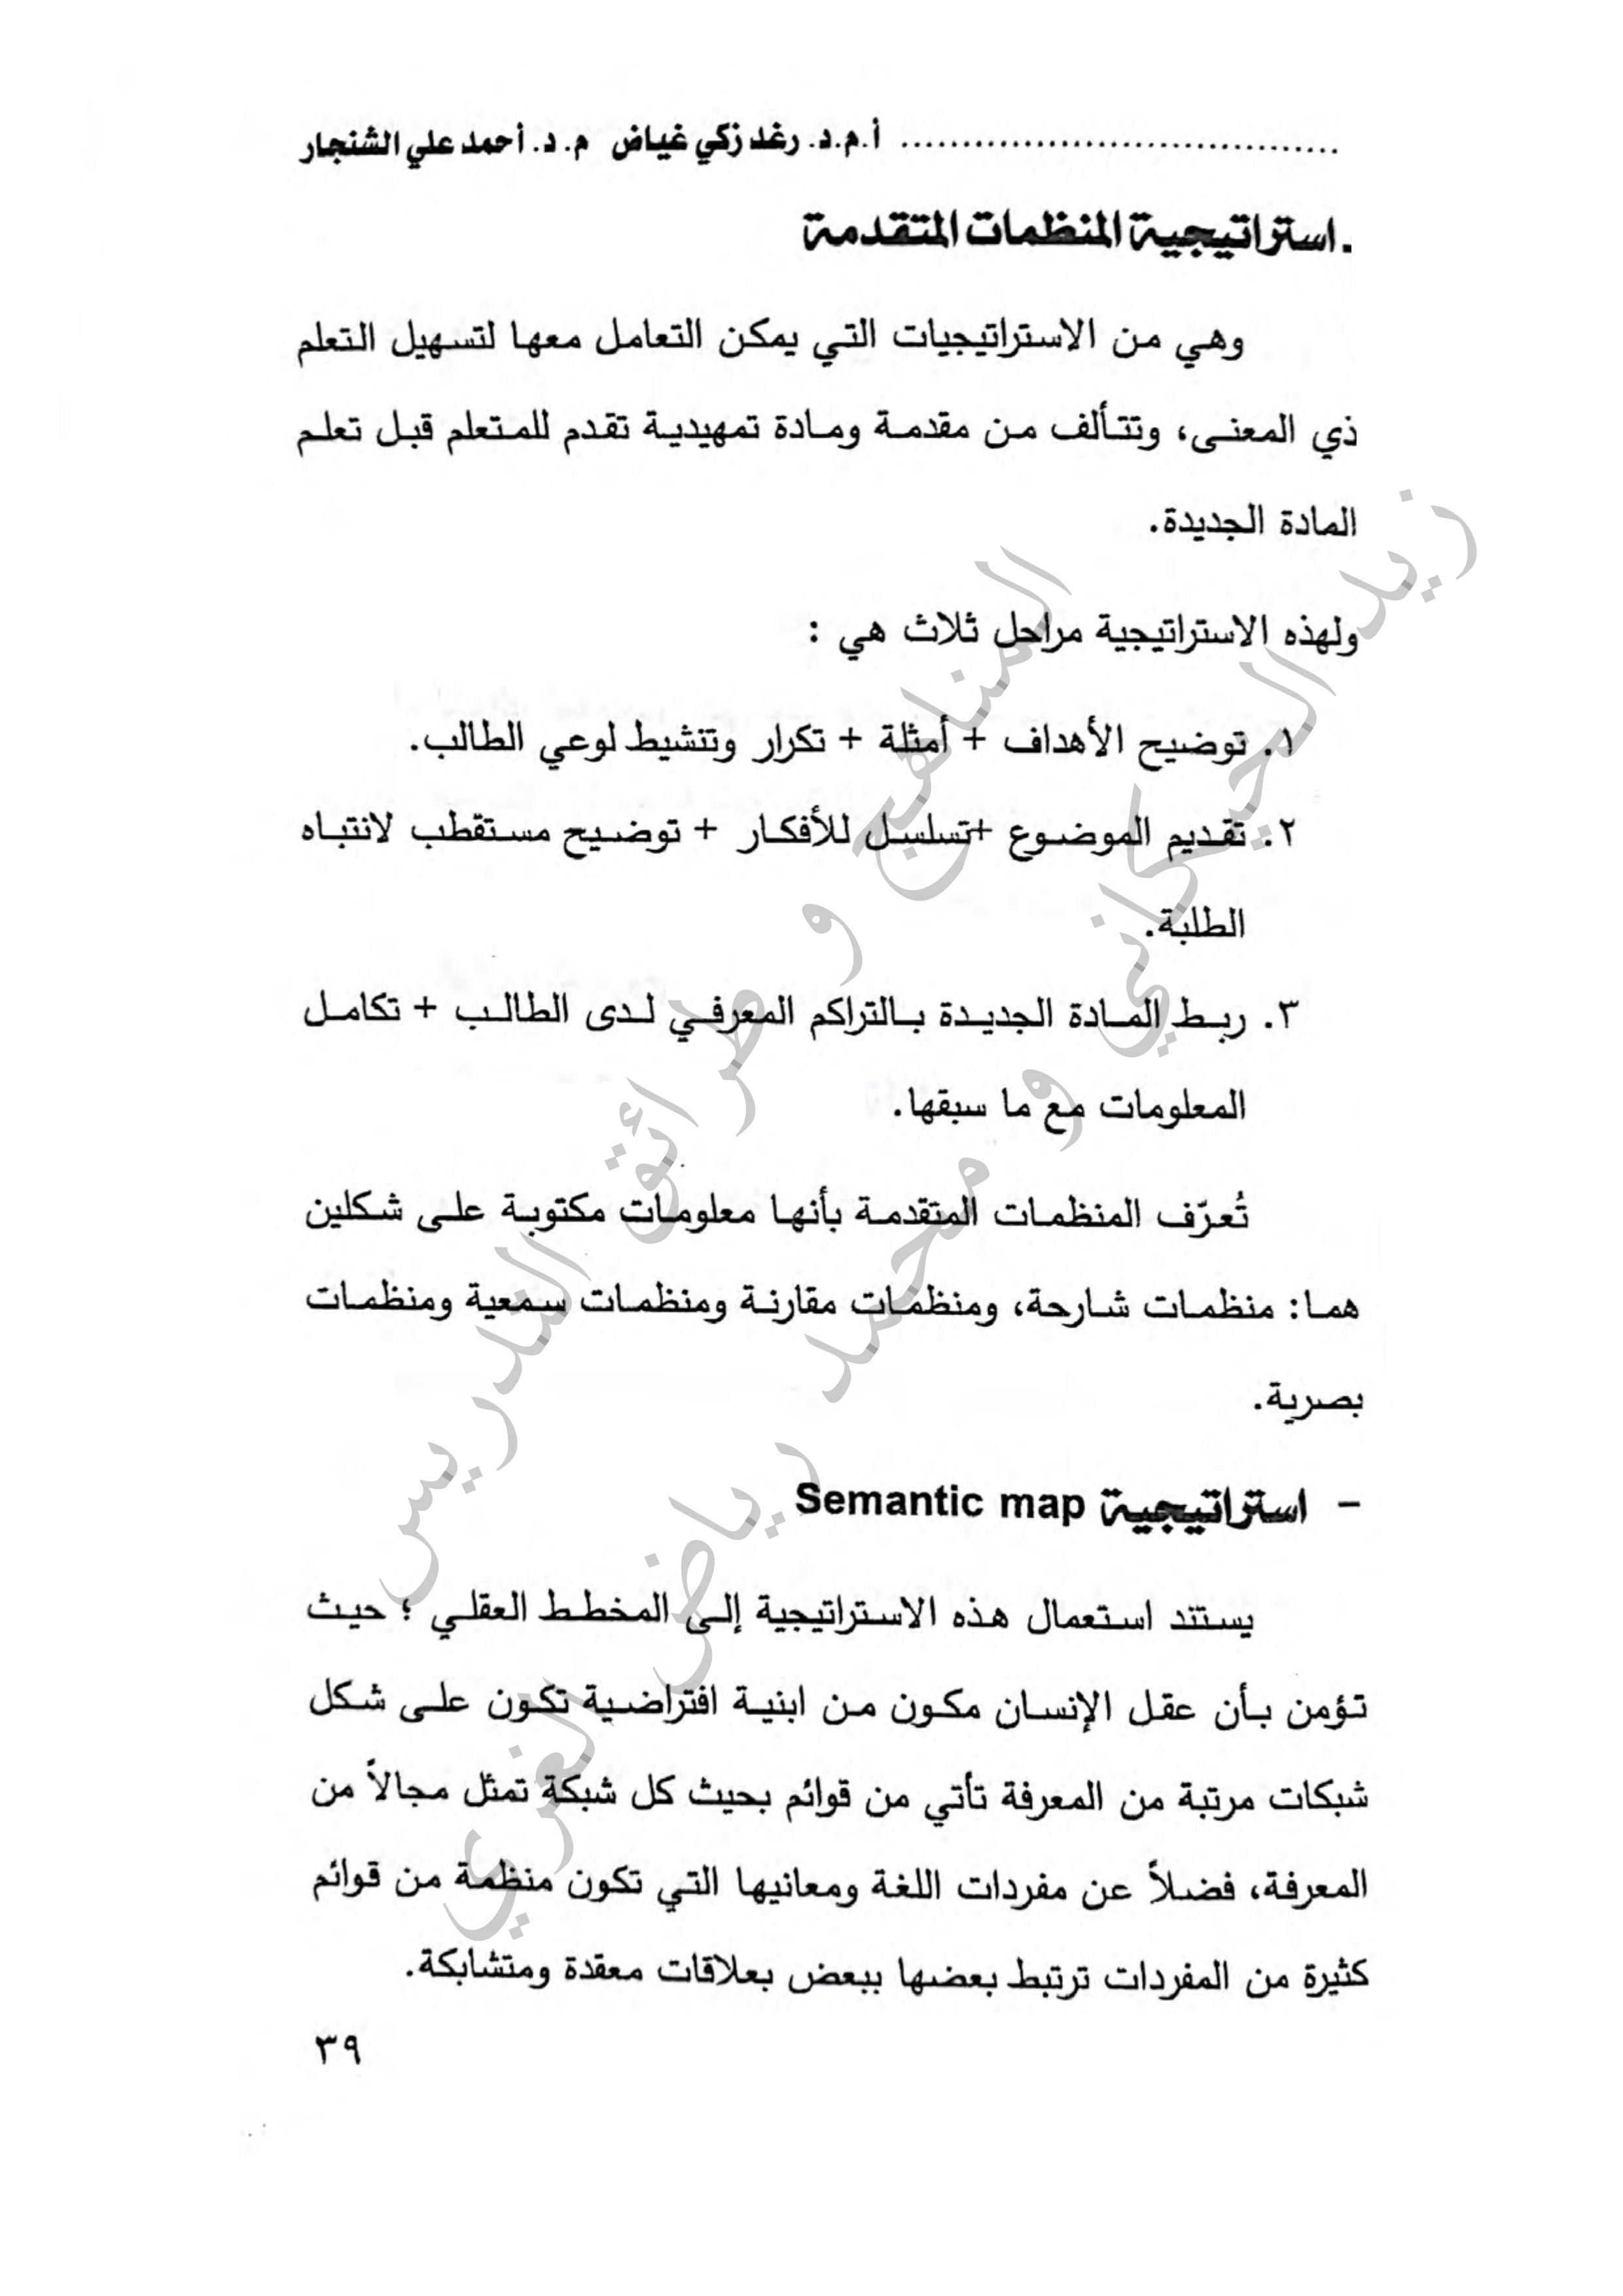 .................................... أ.م.د. رغد زكي غياض م. د. أحمد علي الشنجار
. استراتيجية المنظمات المتقدمة
وهي من الاستراتيجيات التي يمكن التعامل معها لتسهيل التعلم
ذي المعنى، وتتألف من مقدمة ومادة تمهيدية تقدم للمتعلم قبل تعلم
المادة الجديدة.
ولهذه الاستراتيجية مراحل ثلاث هي :
١. توضيح الأهداف + أمثلة + تكرار وتنشيط لوعي الطالب.
٢. تقديم الموضوع +تسلسل للأفكار + توضيح مستقطب لانتباه
الطلبة.
٣. ربط المادة الجديدة بالتراكم المعرفي لدى الطالب + تكامل
المعلومات مع ما سبقها.
تُعرّف المنظمات المتقدمة بأنها معلومات مكتوبة على شكلين
هما: منظمات شارحة، ومنظمات مقارنة ومنظمات سمعية ومنظمات
بصرية.
- استراتيجية Semantic map
يستند استعمال هذه الاستراتيجية إلى المخطط العقلي ؛ حيث
تؤمن بأن عقل الإنسان مكون من ابنية افتراضية تكون على شكل
شبكات مرتبة من المعرفة تأتي من قوائم بحيث كل شبكة تمثل مجالاً من
المعرفة، فضلاً عن مفردات اللغة ومعانيها التي تكون منظمة من قوائم
كثيرة من المفردات ترتبط بعضها ببعض بعلاقات معقدة ومتشابكة.
٣٩
المناهج و طرائق التدريس
زيد الحيكاني و محمد رياض الغري